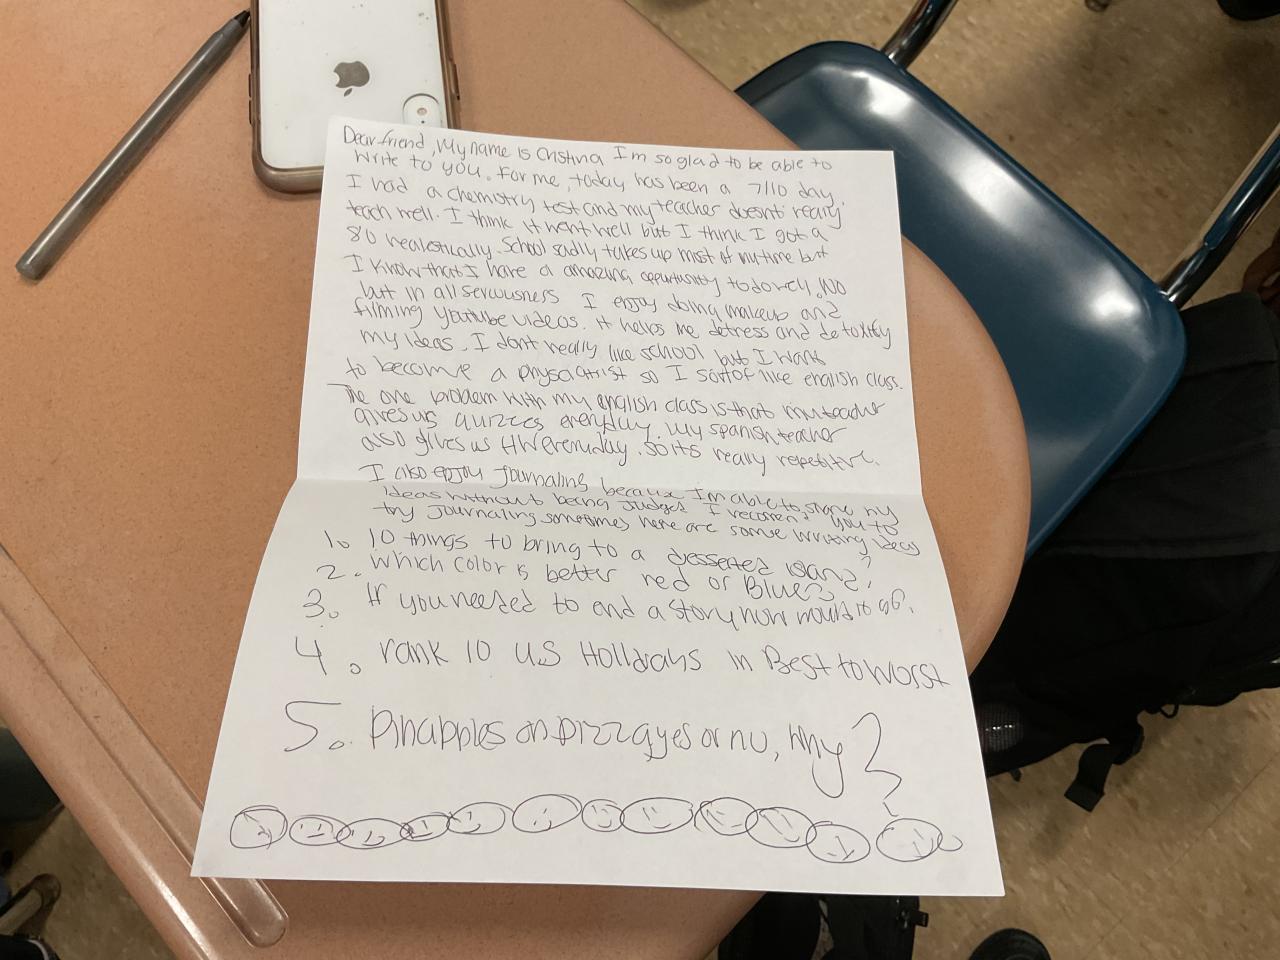 Dear friend, My name is Cristina I'm so glad to be able to
write to you. For me, today has been a 7/10 day.
I had a chemistry test and my teacher doesnt really
teach well. I think it went well but I think I got a
80 realestically. School sadly takes up most of my time but
I know that I have a amazing oppurtunity to do well. No
but in all seriousness I enjoy doing makeup and
filming youtube videos. It helps me detress and detoxify
my ideas. I dont really like school but I want
to become a physciatrist so I sort of like english class.
The one problem with my english class is that my teacher
gives us quizzes everyday. My spanish teacher
also gives us HW everyday. so its really repetitive.
I also enjoy journaling because I'm able to share my
ideas without being judged I recomend you to
try journaling sometimes here are some writing ideas
1. 10 things to bring to a desserted island?
2. Which color is better red or Blue?
3. If you needed to end a story how would it go?
4. rank 10 US Holidays in Best to Worst
5. Pinapples on pizza yes or no, why?